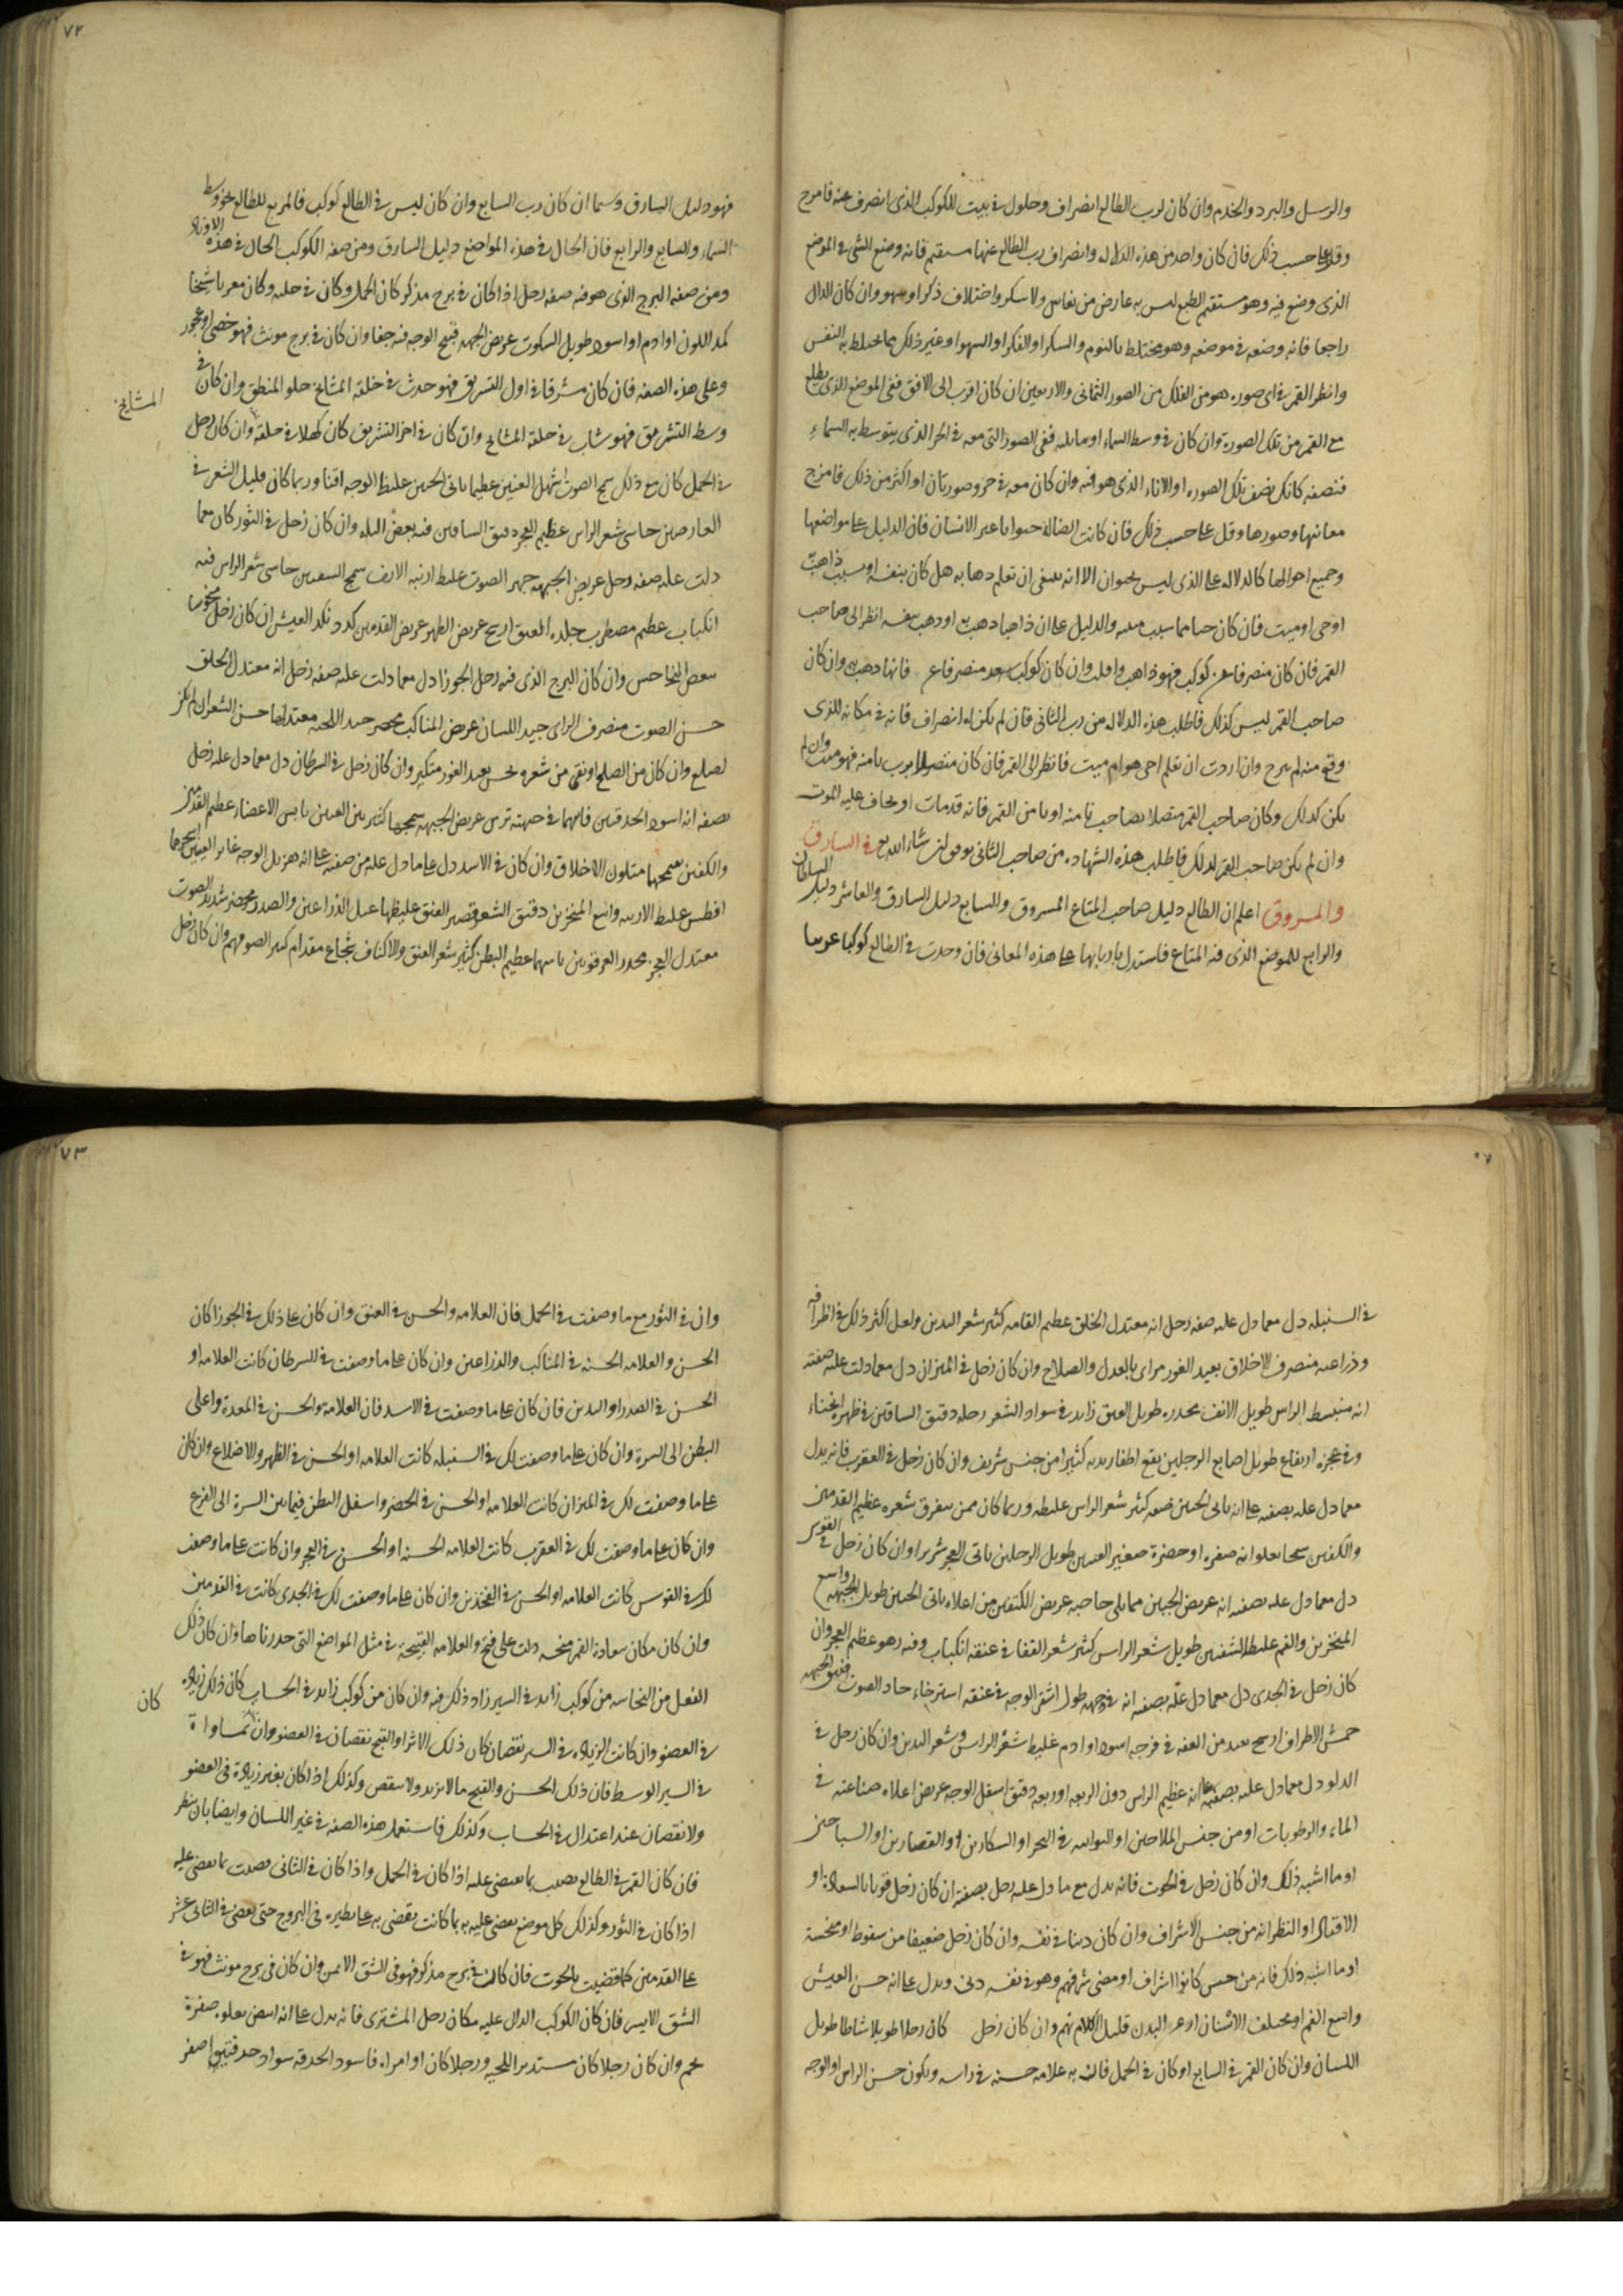 والرسل والبرد والخدم وان كان لرب الطالع انصراف وحلول في بيت للكوكب الذى انصرف عنه فامزج
وقل على حسب ذلك فان كان واحد من هذه الدلاله وانصراف رب الطالع عنها مستقيم فانه وضع الشى في الموضع
الذى وضع فيه وهو مستقيم الطبع ليس به عارض من نعاس ولا سكر واختلاف ذكر او سهو وان كان الدال
راجعا فانه وضعه في موضعه وهو مختلط بالنوم والسكر او الفكر او السهو او غير ذلك مما يختلط به النفس
وانظر القمر في اى صوره هو من الفلك من الصور الثمانى والاربعين ان كان اقرب الى الافق ففى الموضع الذى يطلع
مع القمر من تلك الصورة وان كان في وسط السماء او مايله ففى الصور التى معه في الحر الذى يتوسط به السماء
فتصفه كانك تصف تلك الصوره او الاناء الذى هو فيه وان كان معه في حر وصورتان او اكثر من ذلك فامزج
معانيها وصورها وقل على حسب ذلك فان كانت الضالة حيوانا غير الانسان فان الدليل على مواضعها
وجميع احوالها كالدلاله على الذى ليس بحيوان الا انه ينبغى ان تعلم ذهابه هل كان بنفسه او بسبب ذاهب
او حى او ميت فان كان حيا مما سبب ميله والدليل على ان ذاهبا ذهب به او ذهب بنفسه انظر الى صاحب
القمر فان كان منصرفا عن كوكب فهو ذاهب وافلت وان كان كوكب بعد منصرفا عن فانها ذهب به وان كان
صاحب القمر ليس كذلك فاطلب هذه الدلاله من رب الثانى فان لم يكن له انصراف فانه في مكانه للذى
وقع منه لم يبرح وان اردت ان تعلم احى هو ام ميت فانظر الى القمر فان كان متصلا برب ثامنه فهو ميت وان لم
يكن كذلك وكان صاحب القمر متصلا بصاحب ثامنه او ثامن القمر فانه قد مات او يخاف عليه الموت
وان لم يكن صاحب القمر كذلك فاطلب هذه الشهاده من صاحب الثانى يوفق ان شاء الله تع في السارق
والمسروق اعلم ان الطالع دليل صاحب المتاع المسروق والسابع دليل السارق والعاشر دليل السلطان
والرابع للموضع الذى فيه المتاع فاستدل باربابها على هذه المعانى فان وجدت في الطالع كوكبا غريبا
٧٢
فهو دليل السارق وسيما ان كان رب السابع وان كان ليس في الطالع كوكب فالمربع للطالع نحو وسط
السماء والسابع والرابع فان الحال في هذه المواضع دليل السارق ومن صفه الكوكب الحال في هذه الاوتاد
ومن صفه البرج الذى هو فيه صفه زحل اذا كان في برج مذكر كان الحمل وكان في حلبه وكان مغربا شيخا
كمد اللون او ادم او اسود طويل السكوت عريض الجبهه قبيح الوجه فيه جفا وان كان في برج مونث فهو خصى او عجوز
وعلى هذه الصفه فان كان مشرقا في اول التشريق فهو حدث في خلقه المشايخ حلو المنطق وان كان في
المشايخ
وسط التشريق فهو شاب في خلقة المشايخ وان كان في اخر التشريق كان كهلا في خلقه وان كان زحل
في الحمل كان مع ذلك سمج الصوت اشهل العينين عظيما ناتى الجبين غليظ الوجه اقنا وربما كان قليل الشعر في
العارضين جاسى شعر الراس عظيم العجز دقيق الساقين فيه بعض البله وان كان زحل في الثور كان معما
دلت عليه صفه زحل عريض الجبهه جهر الصوت غليظ ارنبه الانف سمج الشفتين جاسى شعر الراس فيه
انكباب عظيم مضطرب جلده العنق ارسح عريض الظهر عريض القدمين كد ونكد العيش ان كان زحل منحوسا
ببعض المناحس وان كان البرج الذى فيه زحل الجوزا دل معما دلت عليه صفه زحل انه معتدل الخلق
حسن الصوت منصرف الراى جيد اللسان عريض المناكب مخصر جيد اللحيه معتدلها حسن الشعر ان لم يكن
لصلع وان كان من الصلع او نقى من شعره بعيد الغور متكبر وان كان زحل في السرطان دل معما دل عليه زحل
بصفه انه اسود الحدقتين فايهما في جبهته ترس عريض الجبهه سمجها كثير بين العينين يابس الاعضاء عظيم القدمين
والكفين سمجها متلون الاخلاق وان كان في الاسد دل على ما دل عليه من صفته على انه هزيل الوجه غاير العينين
افطس غليظ الارنبه واسع المنخرين دقيق الشعر قصير العنق غليظها عبل الذراعين والصدر مخصر شديد الصوت
معتدل العجز محدر العرقوبين ناسهما عظيم البطن كثير شعر العنق والاكتاف شجاع مقدام كبير الصوفهم وان كان زحل
في السنبله دل معما دل عليه صفه زحل انه معتدل الخلق عظيم القامه كثير شعر البدين ولعل اكثر ذلك في اطرافه
وذراعيه منصرف الاخلاق بعيد الغور مراى بالعدل والصلاح وان كان زحل في الميزان دل معما دلت عليه صفته
انه منبسط الراس طويل الانف محدره طويل العنق زايد في سواد الشعر رجله دقيق الساقين في ظهره انحناء
وفي عجزه ارتفاع طويل اصابع الرجلين يقع اظفار يديه كثيرا من جنس شريف وان كان زحل في العقرب فانه يدل
معما دل عليه بصفه على انه ناتى الجبين ضيقه كثير شعر الراس غليظه وربما كان ممن يتفرق شعره عظيم القدمين
والكفين سمجا تعلوا انه صفره او حضرة صغير العينين طويل الرجلين ناتى العجز شريرا وان كان زحل في القوس
دل معما دل عليه بصفه انه عريض الجبين مما يلى حاجبه عريض الكتفين من اعلاه ناتى الجبين طويل الجبهه واسع
المنخرين والفم غليظ الشفتين طويل شعر الراس كثير شعر القفا في عنقه انكباب وفيه زهو عظيم العجز وان
كان زحل في الجدى دل معما دل عليه بصفه انه في وجهه طول اشقر الوجه في عنقه استرخاء حاد الصوت ضيق الجبهه
حمش الاطراف ارسح بعيد من العفه في فرجه اسود او ادم غليظ شعر الراس وشعر البدين وان كان زحل في
الدلو دل معما دل عليه بصفته على انه عظيم الراس دون الربعه او ربعه دقيق اسفل الوجه عريض اعلاه صناعته في
الماء والرطوبات او من جنس الملاحين او النواتيه في البحر او السكارين او القصارين او السباحين
او ما اشبه ذلك وان كان زحل في الحوت فانه يدل مع ما دل عليه زحل بصفته ان كان زحل قويا بالسعادة او
الاقبال او النظر انه من جنس الاشراف وان كان دينا في نفسه وان كان زحل ضعيفا من سقوط او منحسة
او ما اشبه ذلك فانه من جنس كانوا اشراف او مضى شرفهم وهو في نفسه دنى ويدل على انه حسن العيش
واسع الفم او مختلف الاسنان ازعر البدن قليل الكلام نهم وان كان زحل كان رجلا طويلا شاطا طويل
اللسان وان كان القمر في السابع او كان في الحمل فان به علامه حسنه في راسه ويكون حسن الراس او الوجه
٧٣
وان في الثور مع ما وصفت في الحمل فان العلامه والحسن في العنق وان كان على ذلك في الجوزا كان
الحسن والعلامه الحسنه في المناكب والذراعين وان كان على ما وصفت في السرطان كانت العلامه او
الحسن في الصدر او اليدين فان كان على ما وصفت في الاسد فان العلامة والحسن في المعدة واعلى
البطن الى السرة وان كان على ما وصفت لك في السنبله كانت العلامه او الحسن في الظهر والاضلاع وان كان
على ما وصفت لك في الميزان كانت العلامه او الحسن في الخصر واسفل البطن فيما بين السرة الى الفرج
وان كان على ما وصفت لك في العقرب كانت العلامه الحسنه او الحسن في العجز وان كانت على ما وصفت
لك في القوس كانت العلامه او الحسن في الفخذين وان كان على ما وصفت لك في الجدى كانت في القدمين
وان كان مكان سعادة القمر منحسه دلت على قبح والعلامه القبيحة في مثل المواضع التى حددناها وان كان ذلك
الفعل من النحاسه من كوكب زايد في السير زاد ذلك فيه وان كان من كوكب زايد في الحساب كان ذلك زياده
كان
في العضو وان كانت الزياده في السير نقصان كان ذلك الاثر او القبح نقصان في العضو وان تساوا
في السير الوسط فان ذلك الحسن والقبح مالا يزيد ولا ينقص وكذلك اذا كان بغير زيادة فى العضو
ولا نقصان عند اعتدال في الحساب وكذلك فاستعمل هذه الصفه في غير اللسان وايضا بان ينظر
فان كان القمر في الطالع قضيت بما تقضى عليه اذا كان في الحمل واذا كان في الثانى قضيت بما تقضى عليه
اذا كان في الثور وكذلك كل موضع تقضى عليه به بما كانت تقضى به على نظيره فى البروج حتى تقضى في الثانى عشر
على القدمين كما قضيت بالحوت فان كان في برج مذكر فهو فى الشق الايمن وان كان فى برج مونث فهو في
الشق الايسر فان كان الكوكب الدال عليه مكان زحل المشترى فانه يدل على انه ابيض تعلوه صفرة
لحم وان كان رجلا كان مستدير اللحيه ورجلا كان او امراه فاسود الحدقه سواد حدقتيه اصغر